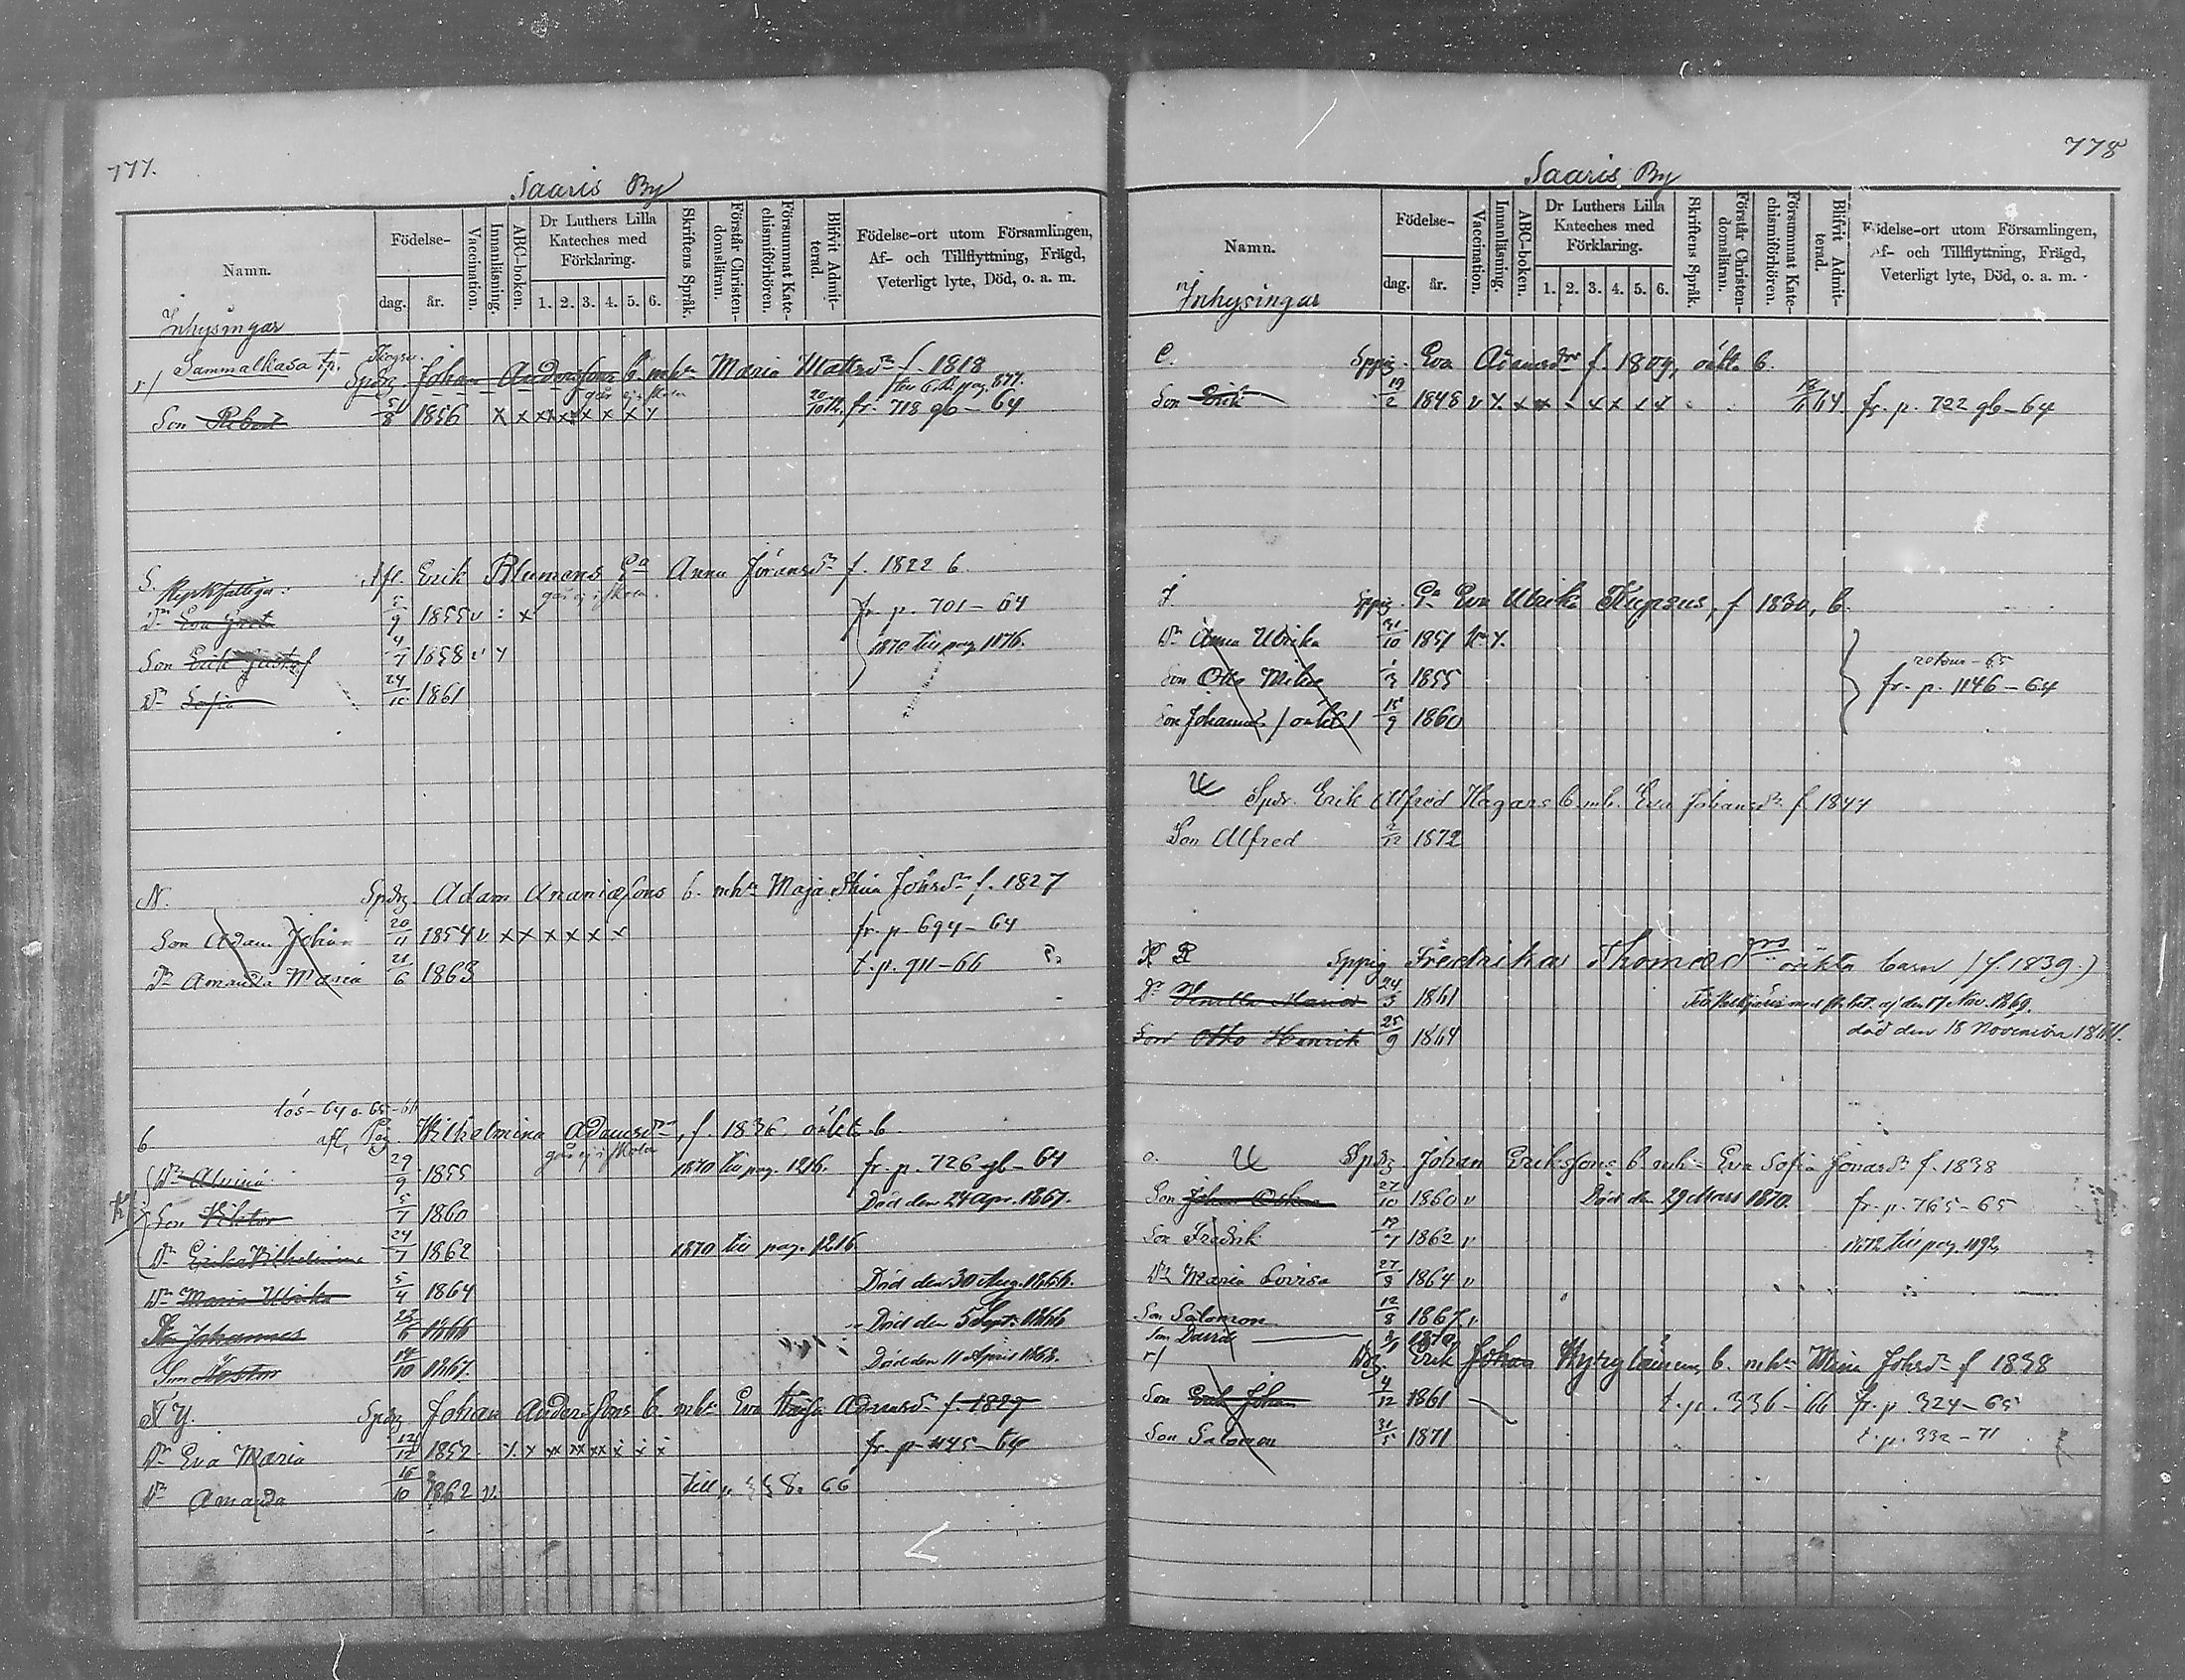 777.
Saaris By
Namn.
Födelse-
dag. år.
Vaccination.
Innanläsning.
ABC-boken.
Dr Luthers Lilla Kateches med Förklaring.
1. 2. 3. 4. 5. 6.
Skriftens Språk.
Förstår Christendomsläran.
Försummat Katechismiförhören.
Blifvit Admitterad.
Födelse-ort utom Församlingen, Af- och Tillflyttning, Frägd, Veterligt lyte, Död, o. a. m.
Inhysingar
Sammalkasa Tp.
Johan Anderssons b. mhn Maria Mattsdr f. 1818
går ej i skola
Son Robert 5/8 1856 x x x x x x x fr. 718 gb – 64
Afl. Erik Blumens Ea Anna Göransdr f. 1822 b.
går ej i skola.
Dr Eva Greta 5/9 1855 v : x fr. p. 701 – 64
Son Erik Gustaf 4/7 1858 v 1870 till pag. 1176.
Dr Sofia 24/10 1861
N. Spdrg. Adam Ananiæsons b. mhn Maja Stina Johsdr f. 1827
Son Adam Johan 20/11 1854 v x x x x x x fr. p. 694 – 64
Dr Amanda Maria 21/6 1863 t. p. 911 – 66
lös – 64 o – 65 – 66
afl. Pig. Wilhelmina Adamsdr, f. 1836 oäkt. b.
går ej i skola
Dr Alvina 29/9 1855 1870 till pag. 1216. fr. p. 726 gb – 64
Son Viktor 5/7 1860 Död den 24 Apr. 1867.
Dr Erika Vilhelmina 24/7 1862 1870 till pag. 1216.
Dr Maria Ulrika 5/4 1864 Död den 30 Aug. 1866.
Son Johannes 23/6 1866 Död den 5 Sept. 1866
Son Nestor 14/10 1867. Död den 11 April 1868.
Spdrg Johan Anderssons b. mhn Eva Adamsdr f. 1829
Dr Eva Maria 12/12 1852 fr. p. 1145 – 64
Dr Amanda 16/10 1862 v. Till 66
778
Saaris By
Namn.
Födelse-
dag. år.
Vaccination.
Innanläsning.
ABC-boken.
Dr Luthers Lilla Kateches med Förklaring.
1. 2. 3. 4. 5. 6.
Skriftens Språk.
Förstår Christendomsläran.
Försummat Katechismiförhören.
Blifvit Admitterad.
Födelse-ort utom Församlingen, Af- och Tillflyttning, Frägd, Veterligt lyte, Död, o. a. m.
Inhysingar
C. Sppig. Eva Adamsdrs f. 1809, oäkta b.
Son Erik 19/2 1848 v fr. p. 722 gb – 64
J. Sppig. Ea Eva Ulrika f 1830, b.
Dr Anna Ulrika 31/10 1851
Son Otto 1855 retour – 65
fr. p. 1146 – 64
Son Johannes / oäkt / 15/9 1860
Spdr. Erik Alfred Hagars b. mh. Eva Johansdr f 1844
Son Alfred 2/12 1872
Sppig Fredrika Thomædrs oäkta barn / f. 1839. )
Dr 24/3 1861 17 Nov. 1869.
död den 18 November 1864.
Son Otto Henrik 25/9 1864
o. Spdrg Johan Erikssons b. mhn Eva Sofia Jonasdr f. 1838
Son Johan Oskar 27/10 1860 v Död den 29 Mars 1870. fr. p. 765 – 65
Son Fredrik 1862 v 1872 till pag. 1192
Dr Maria Lovisa 27/8 1864 v
Son Salomon 12/8 1867 v
Son David 1870
Erik Johan b. mhn Mina Johsdr f 1838
Son Erik Johan 4/12 1861 t. p. 336 – 66 fr. p. 324 – 65
Son Salomon 31/5 1871 t. p. 332 – 71